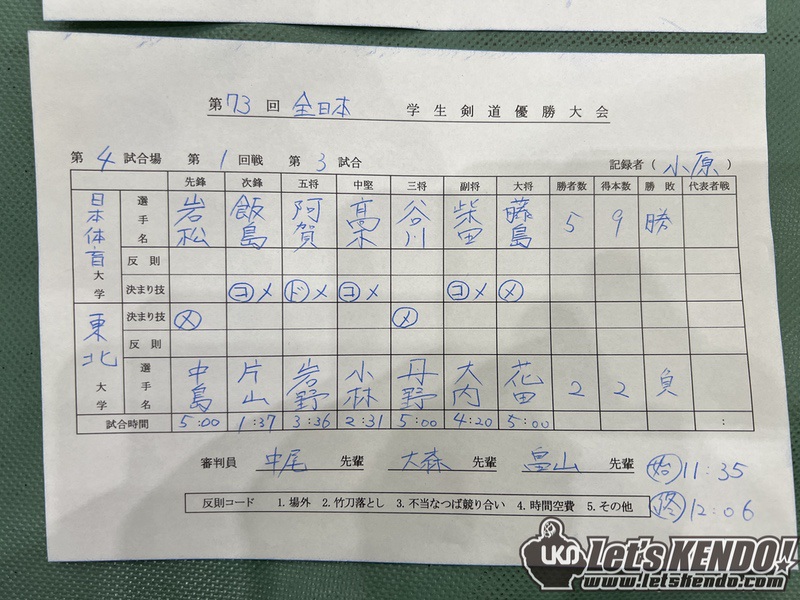 第73回 全日本 学生剣道優勝大会
第 4 試合場 第 1 回戦 第 3 試合 記録者（小原）
先鋒 次鋒 五将 中堅 三将 副将 大将 勝者数 得本数 勝敗 代表者戦
日本体育大学 選手名 岩松 飯島 阿賀 高木 谷川 柴田 藤島 5 9 勝
反則
決まり技 コメ ドメ コメ コメ メ
東北大学 決まり技 メ メ
反則
選手名 中島 片山 岩野 小林 丹野 大内 花田 2 2 負
試合時間 5:00 1:37 3:36 2:31 5:00 4:20 5:00 :
審判員 中尾 先輩 大森 先輩 畠山 先輩 始 11:35
反則コード 1. 場外 2. 竹刀落とし 3. 不当なつば競り合い 4. 時間空費 5. その他 終 12:06
LKN Let's KENDO!
www.letskendo.com